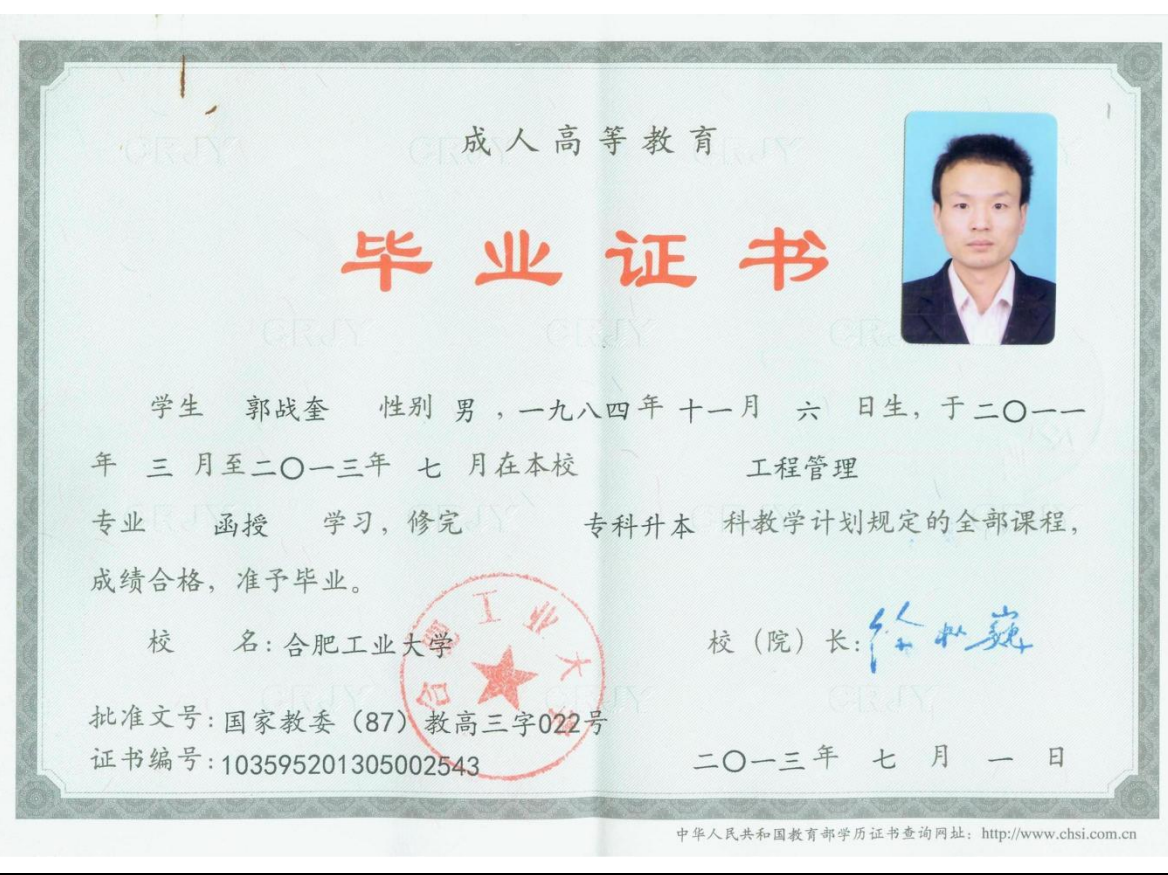 成人高等教育
毕业证书
学生 郭战奎 性别 男 ，一九八四年 十一月 六 日生，于二〇一一
年 三 月至二〇一三年 七 月在本校 工程管理
专业 函授 学习，修完 专科升本 科教学计划规定的全部课程，
成绩合格，准予毕业。
校 名：合肥工业大学 校（院）长：徐枞巍
合肥工业大学
批准文号：国家教委（87）教高三字022号
证书编号：103595201305002543 二〇一三年 七 月 一 日
中华人民共和国教育部学历证书查询网址：http://www.chsi.com.cn
CRJY CRJY CRJY
CRJY CRJY CRJY